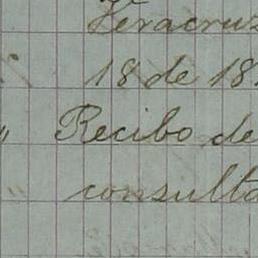 Veracruz
18 de 18
" Recibo de
consulta